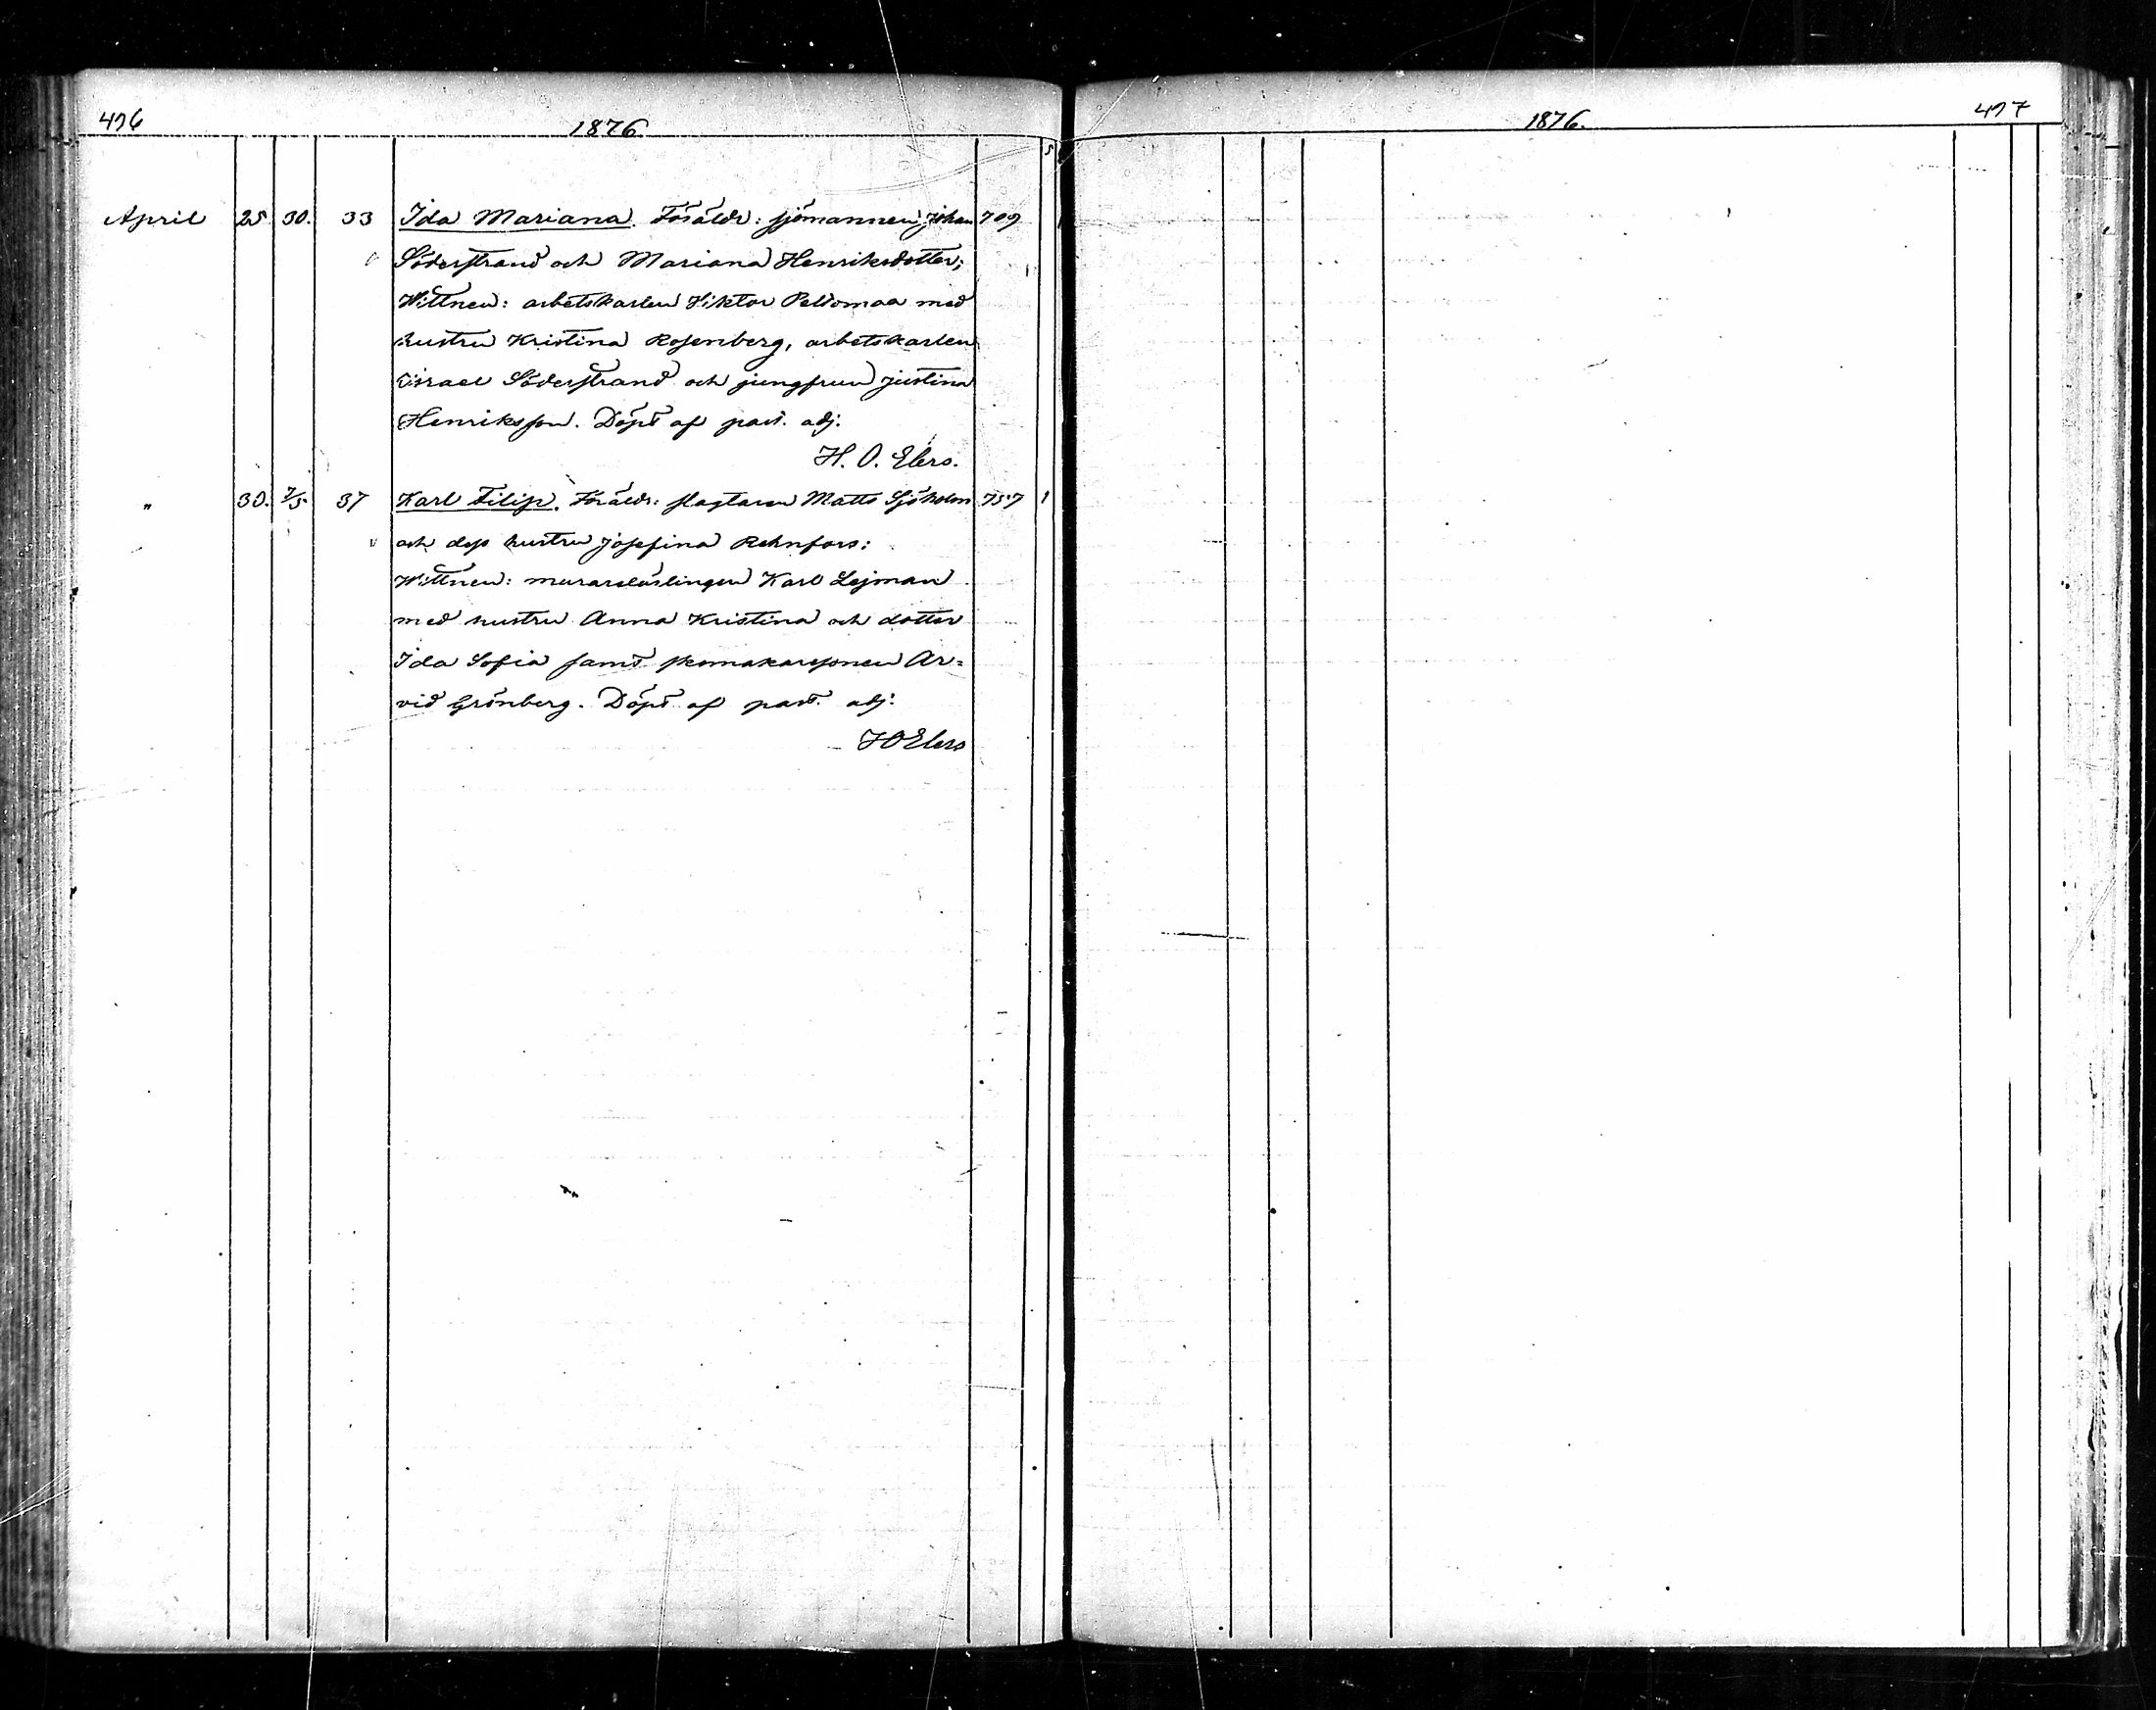 476
1876
April 25 30. 33 Ida Mariana. Föräldr: sjömannen Johan 709
Söderstrand och Mariana Henriksdotter;
Wittnen: arbetskarlen Viktor Peldomaa med
hustru Kristina Rosenberg, arbetskarlen
Israel Söderstrand och jungfrun Justina
Henriksson. Döpt af past. adj.
H. O. Elers.
" 30. 7/5. 37 Karl Filip. Föräldr: slagtaren Matts Sjöholm 757 1
och dess hustru Josefina Rehnfors;
Wittnen: murarelärlingen Karl Lejman
med hustru Anna Kristina och dotter
Ida Sofia samt skomakaresonen Ar=
vid Grönberg. Döpt af past. adj:
HOElers
1876.
477